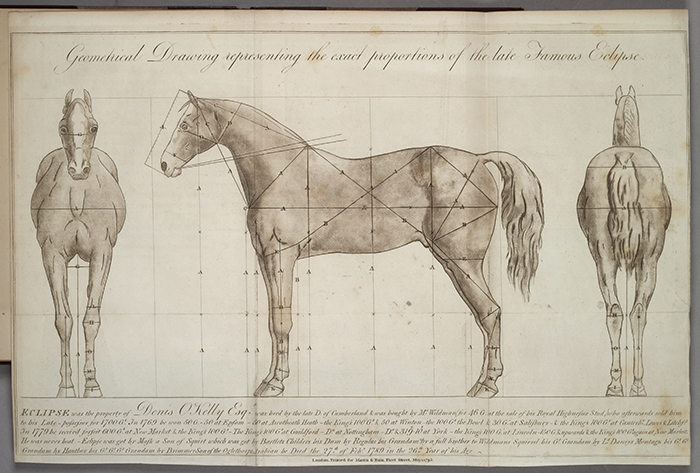 Geometrical Drawing representing the exact proportions of the late Famous Eclipse.
ECLIPSE was the property of Denis O'Kelly Esq. was bred by the late D. of Cumberland & was bought by Mr. Wildman for 46 G. at the sale of his Royal Highness's Stud, who afterwards sold him
to his Late possessor for 1700 Gs. In 1769 he won 50 G. 50 at Epsom 50 at Ascotheath Heath the Kings 100 Gs. & 50 at Winton the 100 Gs. the Bowl & 30 G. at Salisbury & the Kings 100 Gs. at
In 1770 he received forfeit 600 Gs. at New Market & the Kings 100 Gs. The Kings 100 Gs. at Guildford Do. at Nottingham Do. & 319 at York the Kings 100 Gs. at Lincoln 150 G. & upwards & the Kings 100 Gs. again at New Market.
He was never beat Eclipse was got by Mask a Son of Squirt which was got by Bartlets Childers his Dam by Regulus his Grandam by a full brother to Wildmans Squirrel his Gt. Grandam by Ld. Darcys Montagu his G. G.
Grandam by Hautboy his G. G. G. Grandam by Brimmer Son of the Arabian he Died the 27th. of Feby. 1789 in the 26th. Year of his Age
London, Printed for Martin & Bain, Fleet Street,